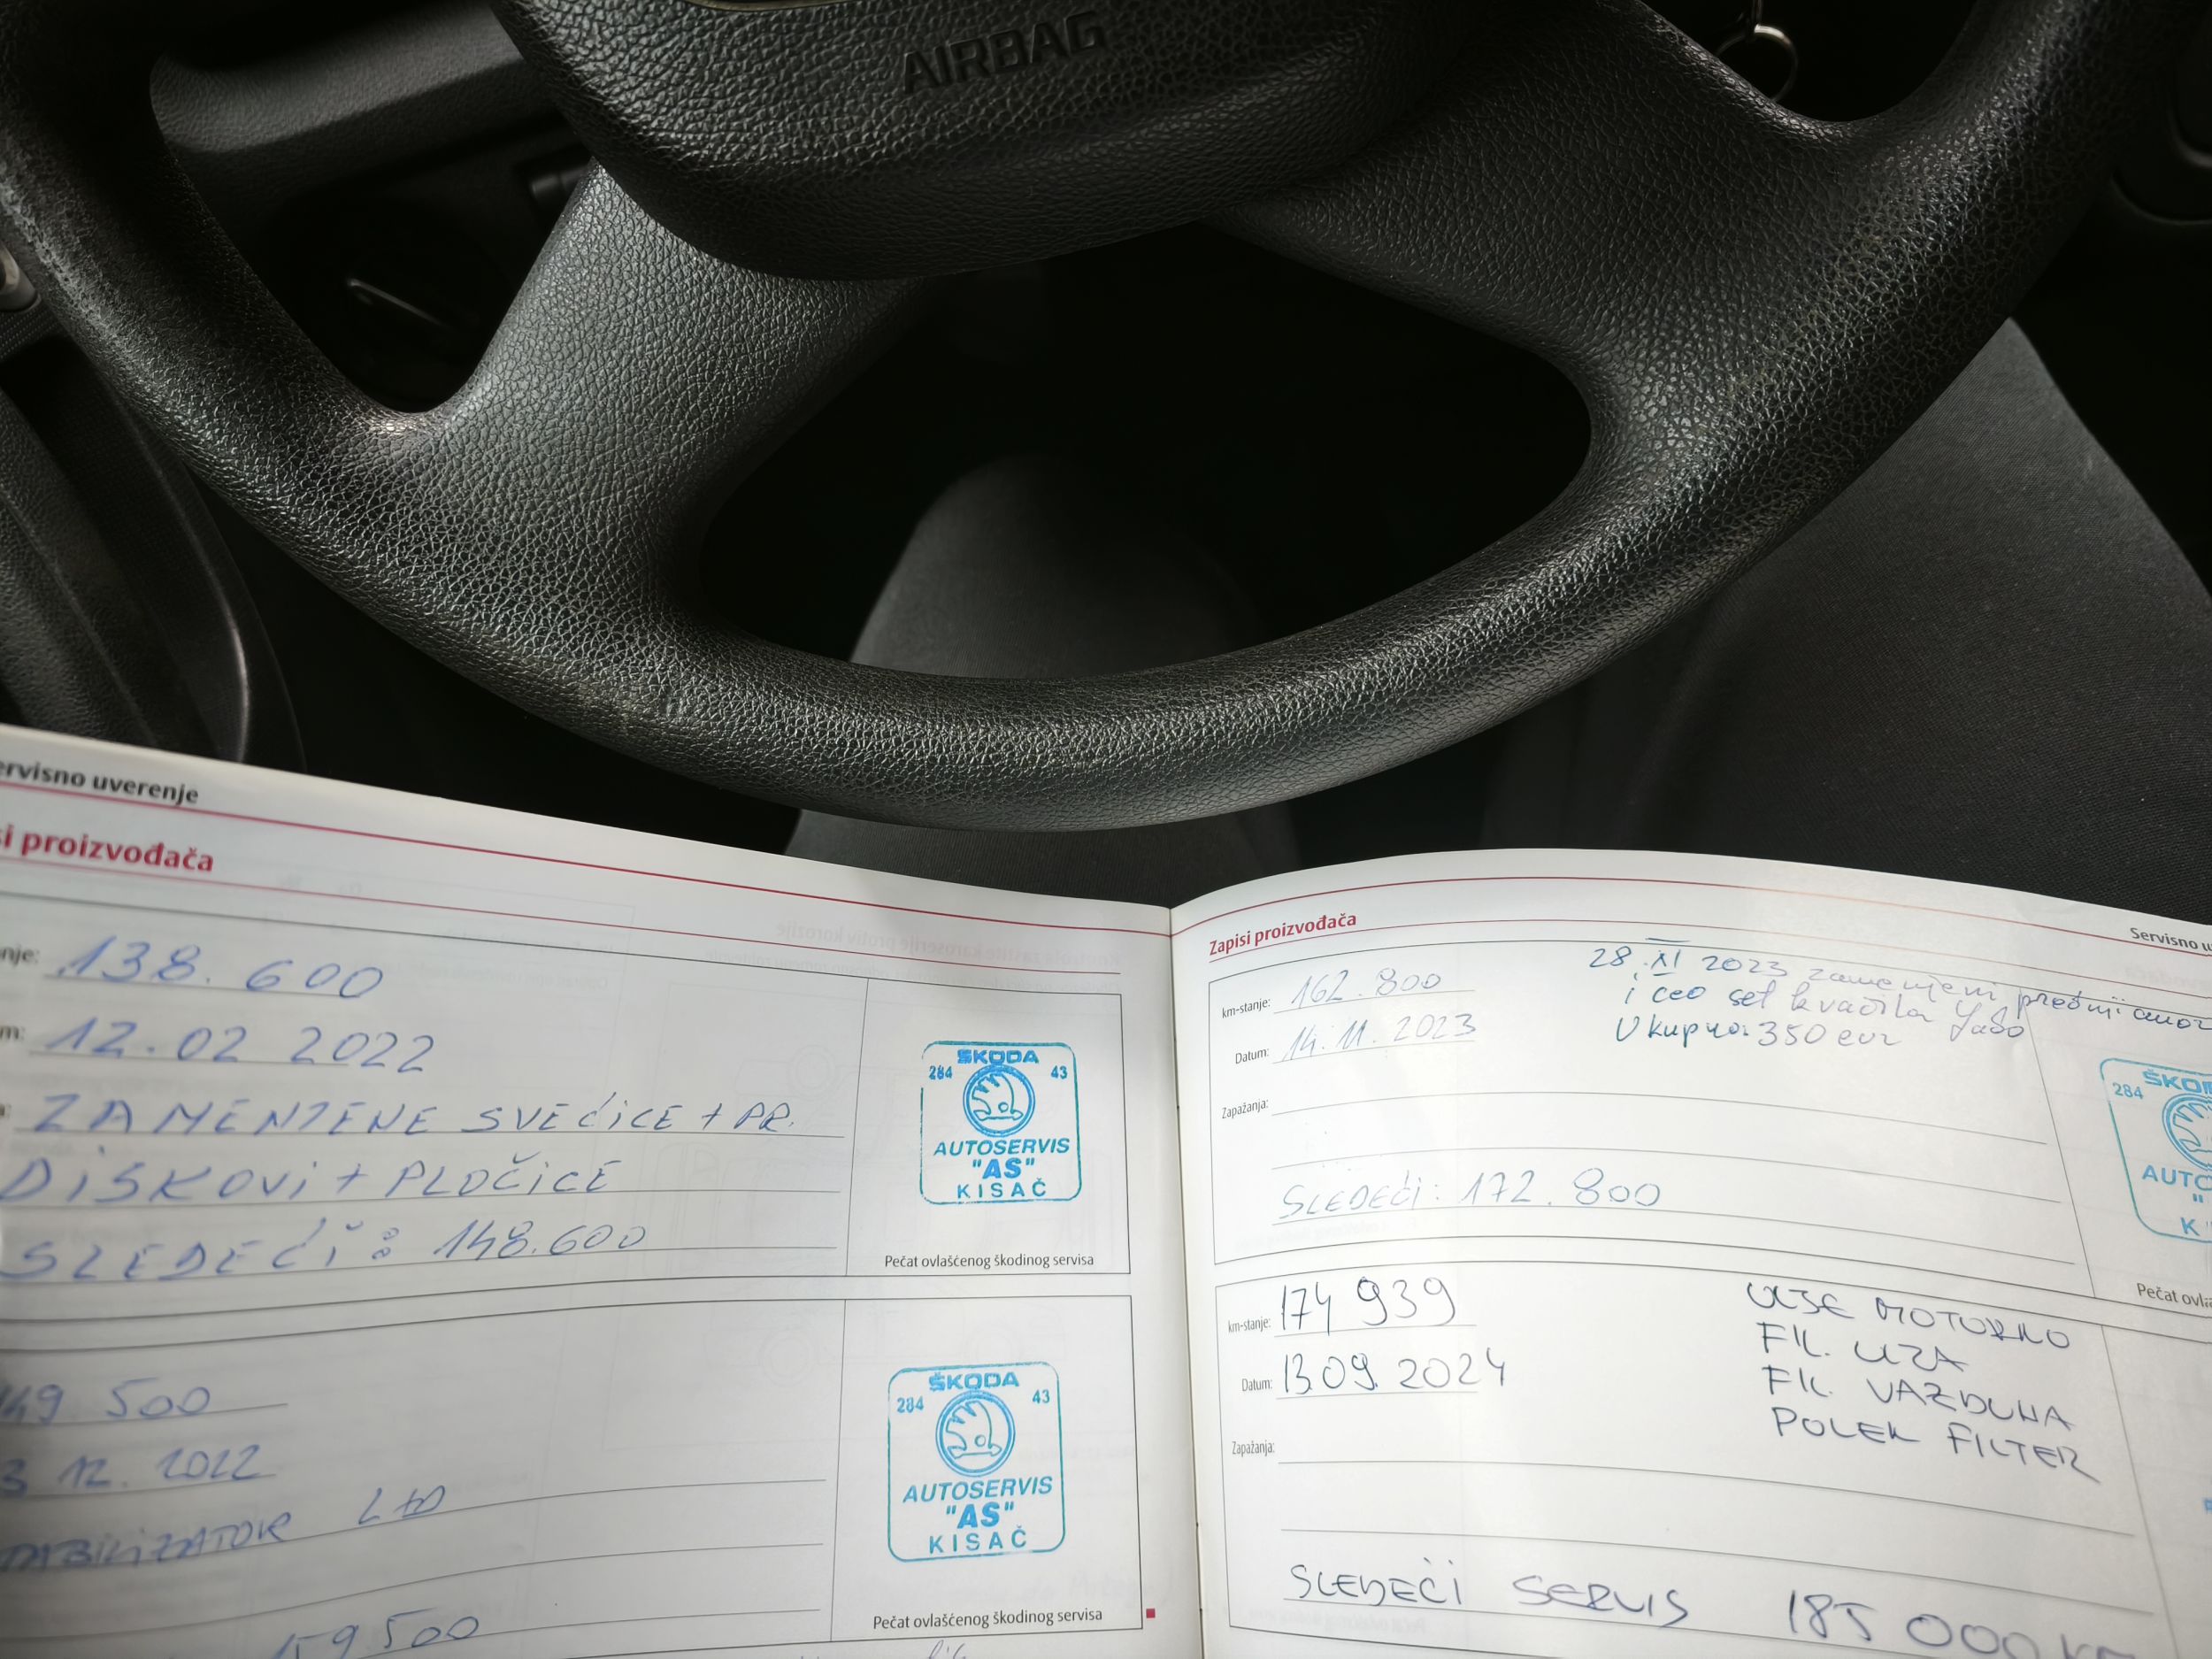 AIRBAG
ervisno uverenje
si proizvođača
nje: 138.600
m: 12.02 2022
a: ZAMENJENE SVEĆiCE + PR.
DiSKOVi + PLOČiCE
SLEDEĆi: 148.600
ŠKODA
284 43
AUTOSERVIS
"AS"
KISAČ
Pečat ovlašćenog škodinog servisa
149 500
3 12. 2022
TABiLiZATOR L+D
159 500
ŠKODA
284 43
AUTOSERVIS
"AS"
KISAČ
Pečat ovlašćenog škodinog servisa
Zapisi proizvođača
Servisno u
km-stanje: 162.800
Datum: 14.11.2023
28.XI 2023 zamenjeni prednji amor
i ceo set kvačila
Ukupno: 350 eur
Zapažanja:
SLEDEĆi: 172.800
ŠKOD
284
AUTO
"
K
Pečat ovla
km-stanje: 174 939
Datum: 13.09.2024
ULJE MOTORNO
FIL. ULJA
FIL. VAZDUHA
POLEN FILTER
Zapažanja:
SLEDEĆi SERVIS 185 000 K